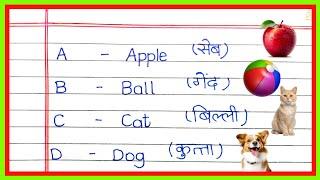 A - Apple (सेब)
B - Ball (गेंद)
C - Cat (बिल्ली)
D - Dog (कुत्ता)